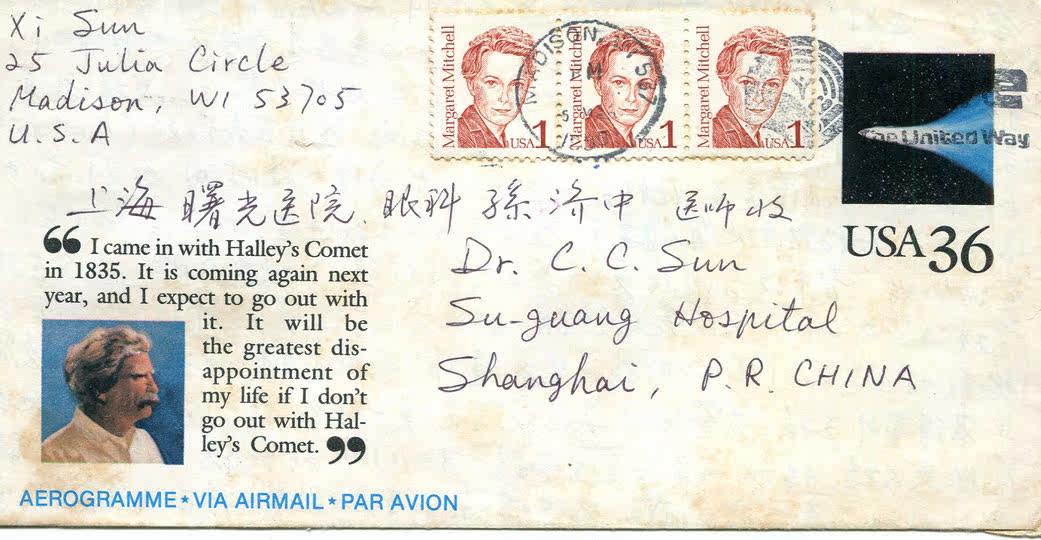 Xi Sun
25 Julia Circle
Madison, WI 53705
U.S.A
Margaret Mitchell
USA 1
Margaret Mitchell
USA 1
Margaret Mitchell
USA 1
MADISON,
537
The United Way
USA 36
上海 曙光医院. 眼科 孫 济中 医师收
Dr. C. C. Sun
Su-guang Hospital
Shanghai, P.R. CHINA
“I came in with Halley's Comet
in 1835. It is coming again next
year, and I expect to go out with
it. It will be
the greatest dis-
appointment of
my life if I don't
go out with Hal-
ley's Comet.”
AEROGRAMME★VIA AIRMAIL★PAR AVION